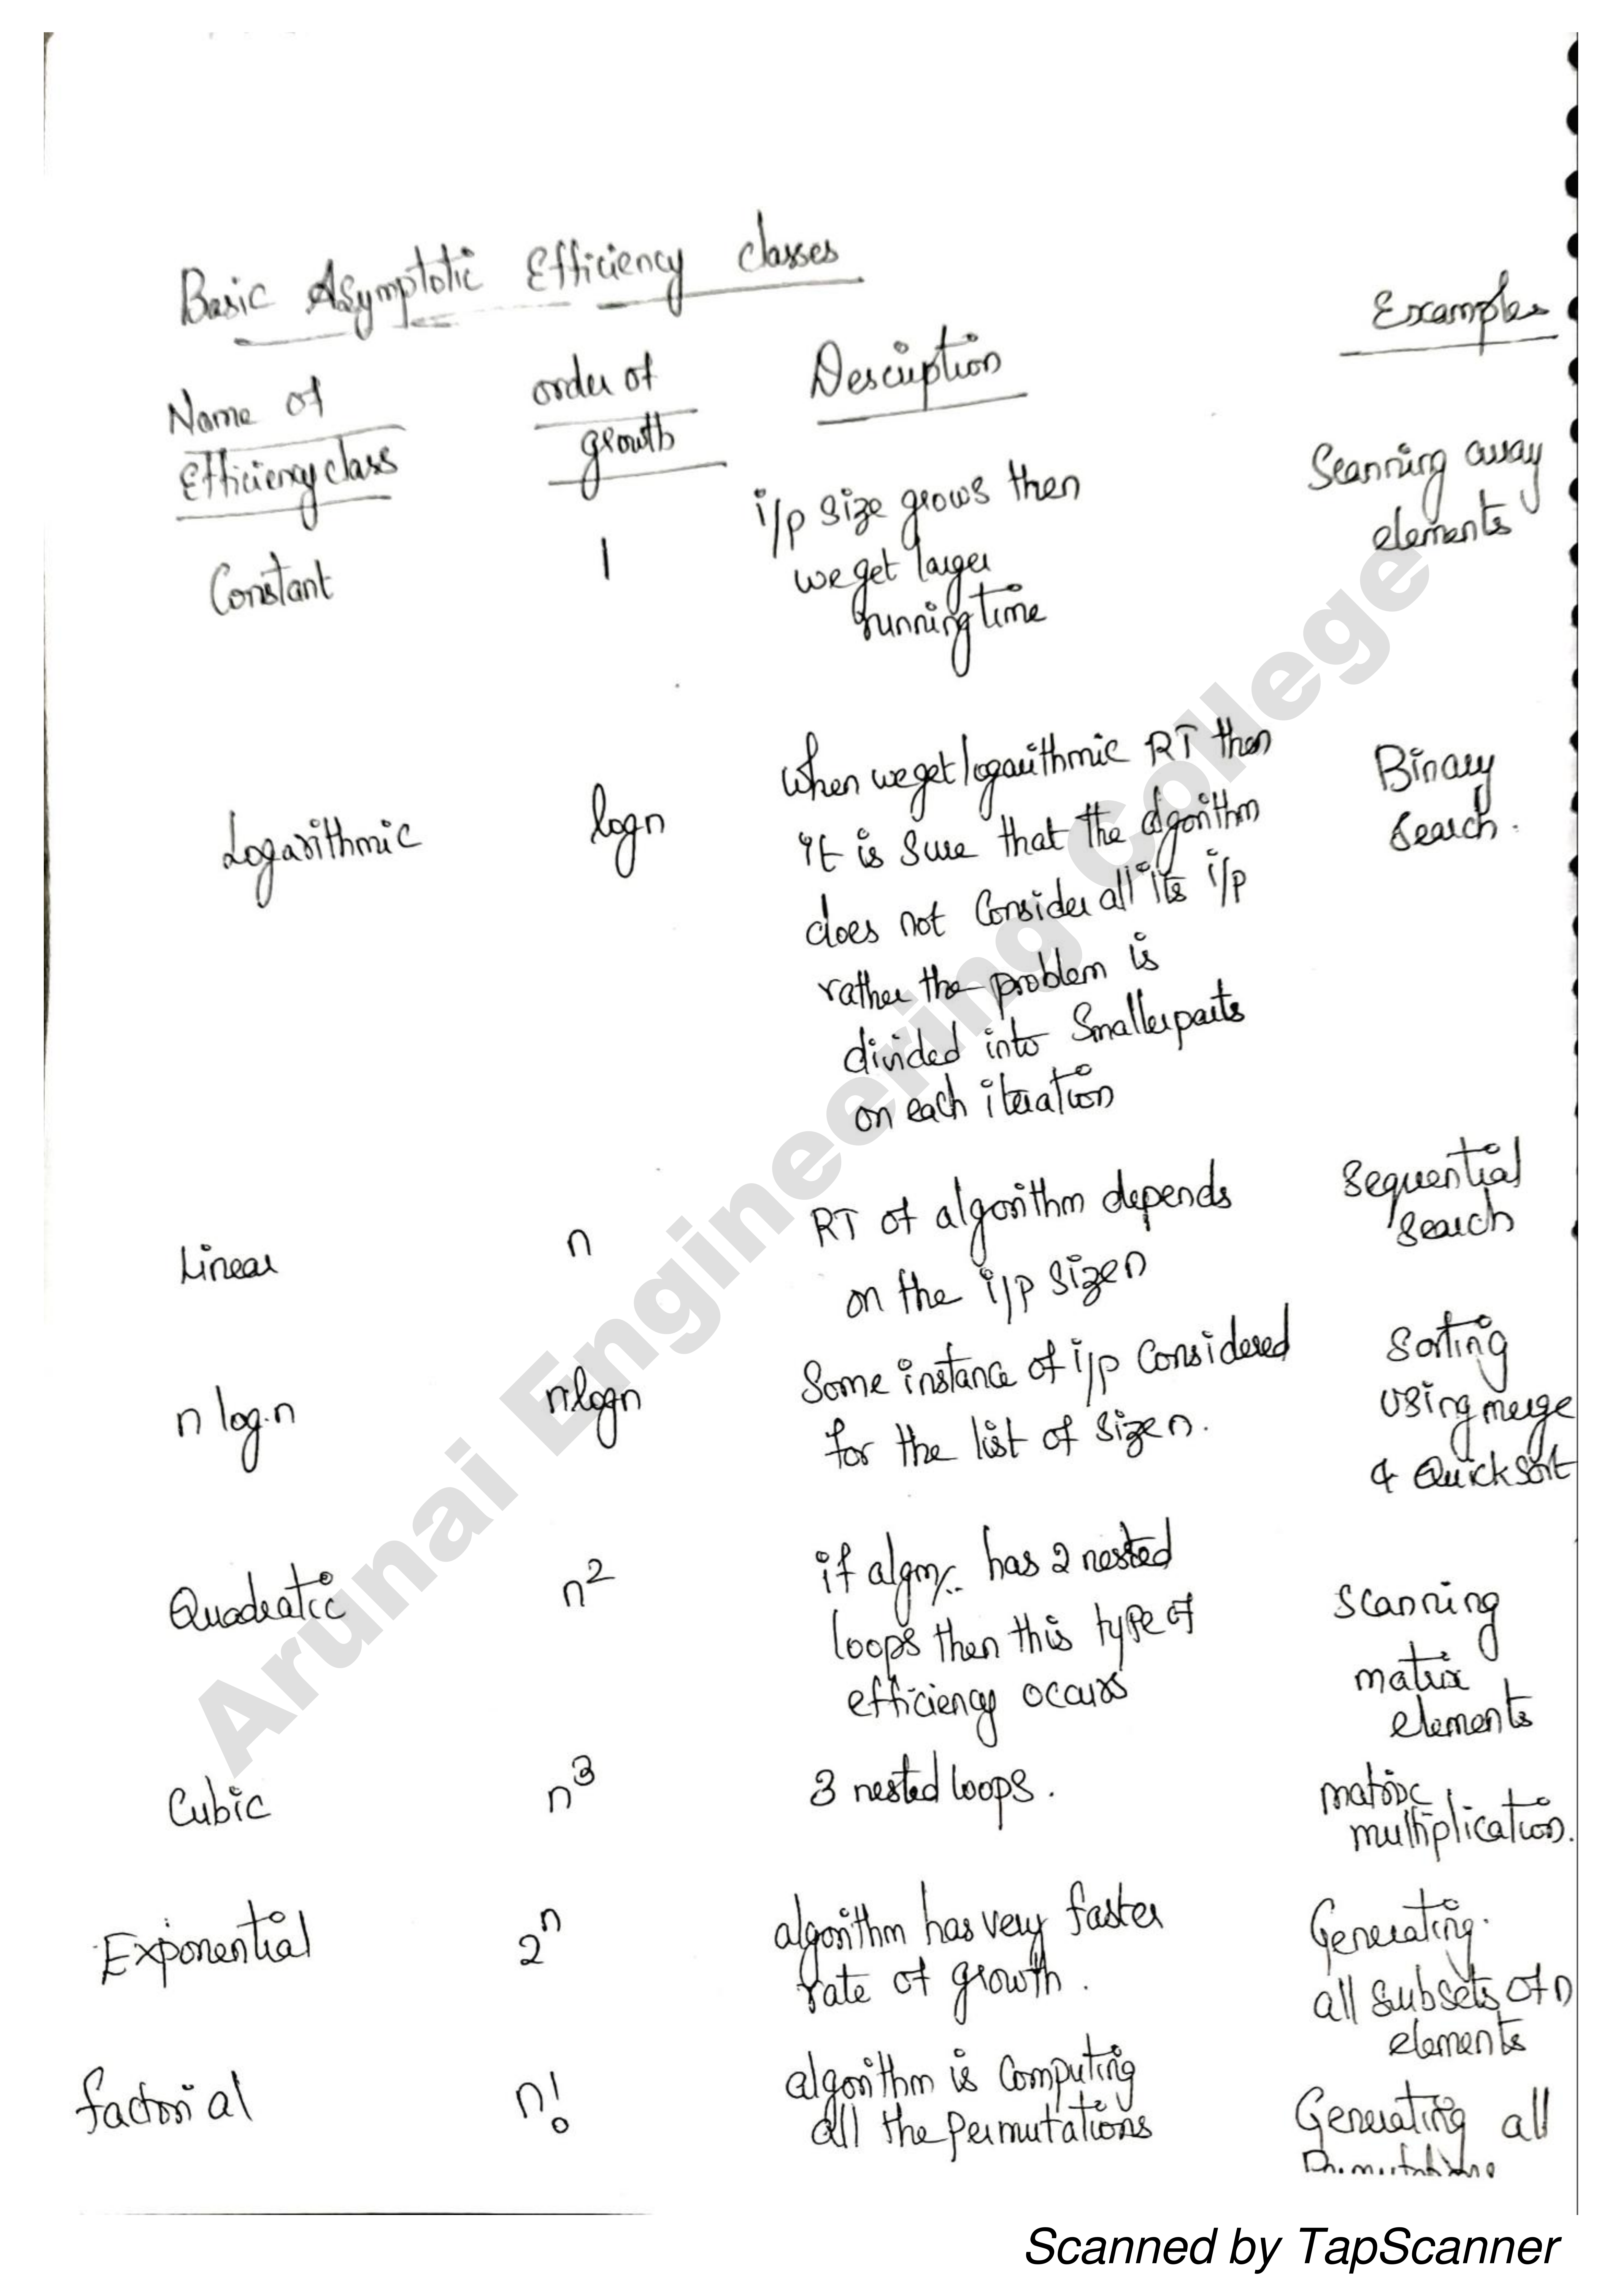 Basic Asymptotic Efficiency classes
Name of
Efficiency class
order of
growth
Description
Examples
Constant
1
i/p size grows then
we get larger
running time
Scanning array
elements
Logarithmic
logn
when we get logarithmic RT then
it is sure that the algorithm
does not consider all its i/p
rather the problem is
divided into smaller parts
on each iteration
Binary
search.
Linear
n
RT of algorithm depends
on the i/p size n
Sequential
search
n log.n
nlogn
Some instance of i/p considered
for the list of size n.
Sorting
using merge
& Quick sort
Quadratic
n²
if algm/.. has 2 nested
loops then this type of
efficiency occurs
Scanning
matrix
elements
Cubic
n³
3 nested loops.
matrix
multiplication.
Exponential
2ⁿ
algorithm has very faster
rate of growth.
Generating
all subsets of n
elements
factorial
n!
algorithm is computing
all the permutations
Generating all
Arunai Engineering College
Scanned by TapScanner